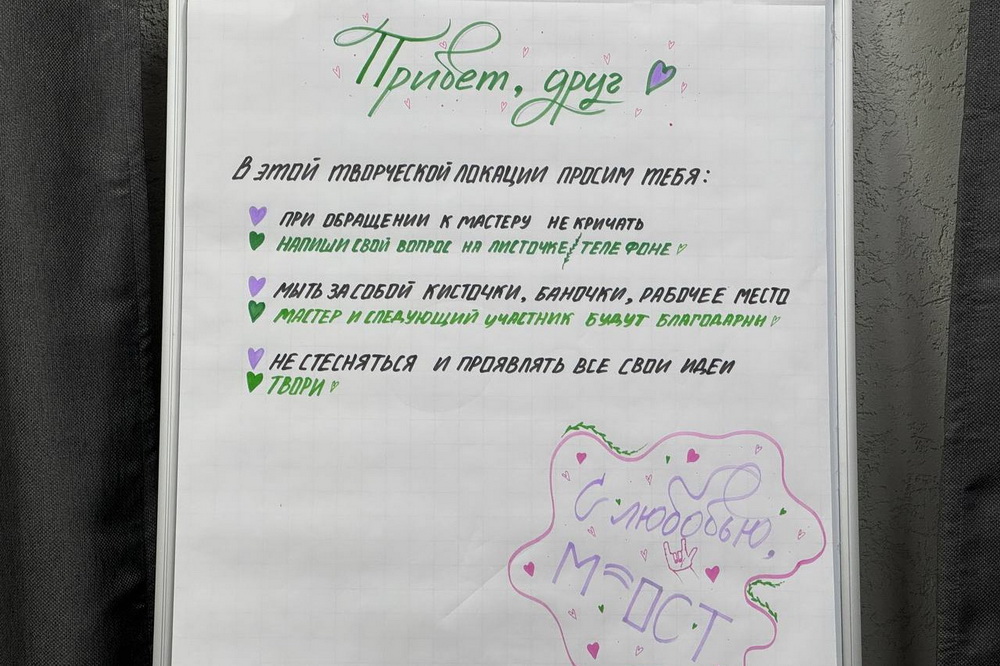 Привет, друг
В ЭТОЙ ТВОРЧЕСКОЙ ЛОКАЦИИ ПРОСИМ ТЕБЯ:
ПРИ ОБРАЩЕНИИ К МАСТЕРУ НЕ КРИЧАТЬ
НАПИШИ СВОЙ ВОПРОС НА ЛИСТОЧКЕ/ТЕЛЕФОНЕ
МЫТЬ ЗА СОБОЙ КИСТОЧКИ, БАНОЧКИ, РАБОЧЕЕ МЕСТО
МАСТЕР И СЛЕДУЮЩИЙ УЧАСТНИК БУДУТ БЛАГОДАРНЫ
НЕ СТЕСНЯТЬСЯ И ПРОЯВЛЯТЬ ВСЕ СВОИ ИДЕИ
ТВОРИ
С любовью,
М≈ОСТ